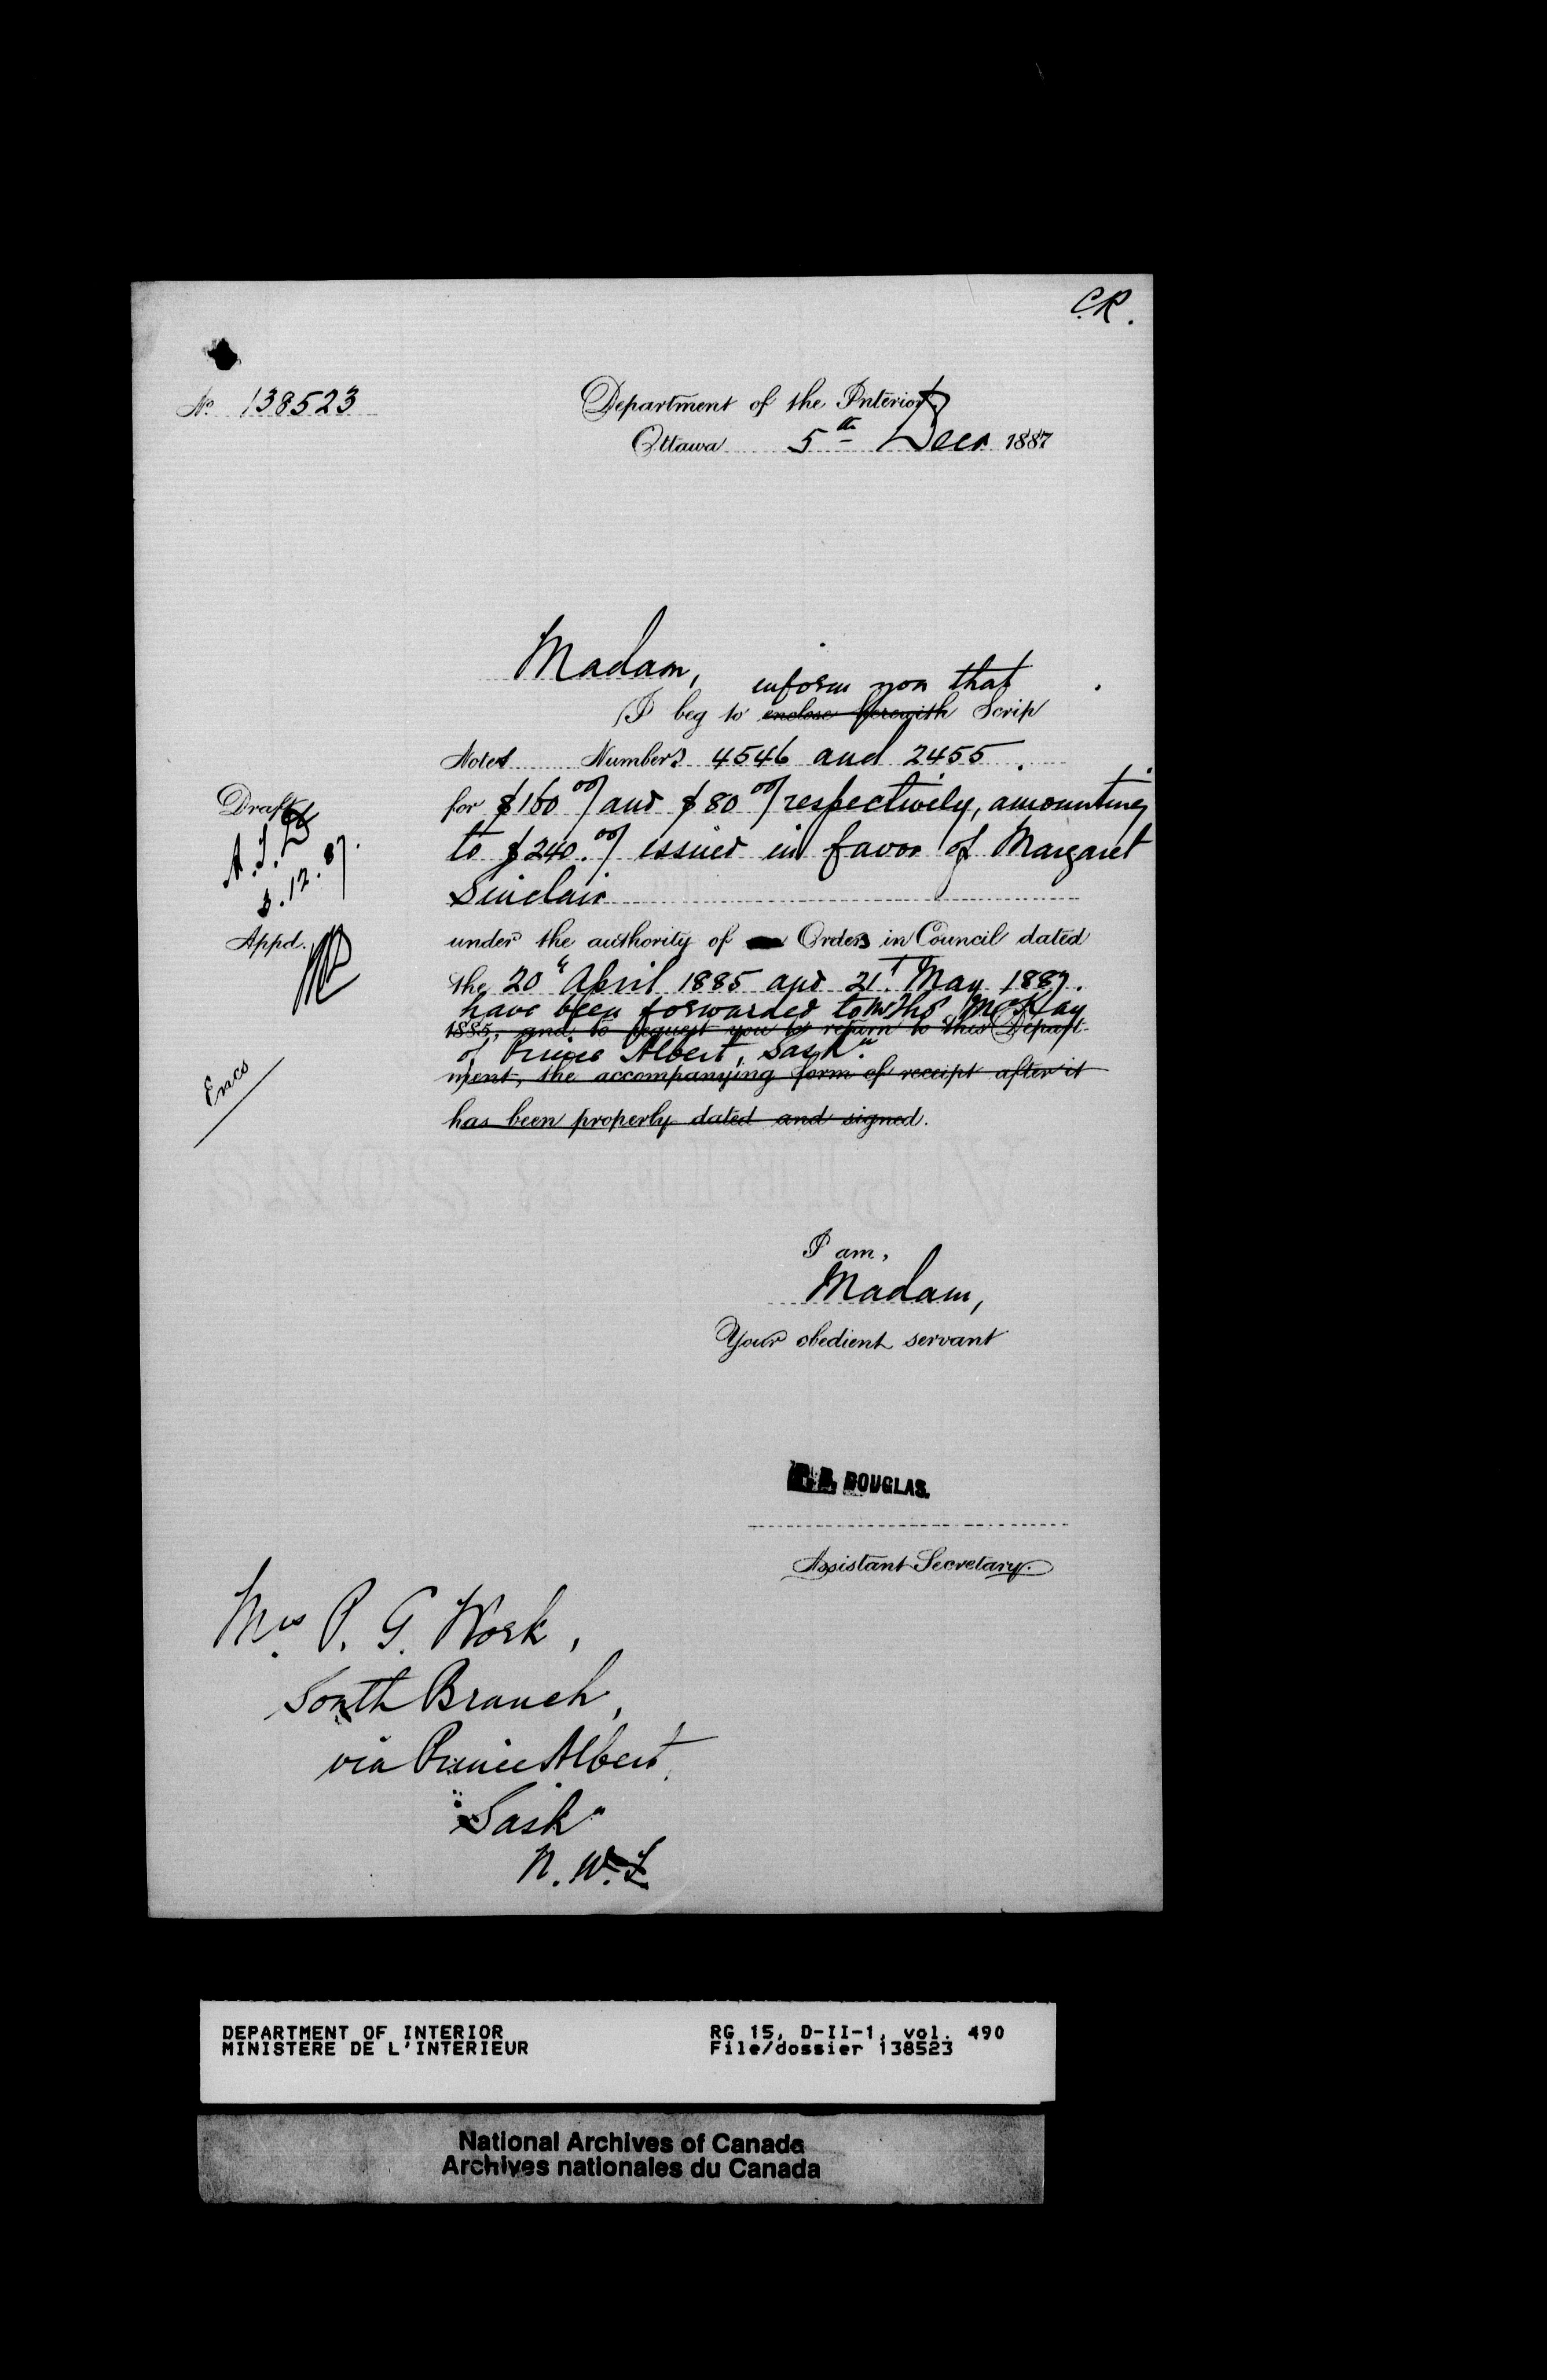 C.R.
No. 138523
Department of the Interior
Ottawa 5th Decr 1887
Madam,
inform you that
I beg to enclose herewith Scrip
Notes Numbers 4546 and 2455
for $160.00/ and $80.00/ respectively, amounting
to $240.00/ issued in favor of Margaret
Sinclair
under the authority of Orders in Council dated
the 20" April 1885 and 21st May 1887.
have been forwarded to Mr Thos McKay
1885, and to request you to return to this Depart-
of Prince Albert, Sask"
ment, the accompanying form of receipt after it
has been properly dated and signed.
Draft
A.J.L
3.12.87.
Appd.
Encs
I am,
Madam,
Your obedient servant
DOUGLAS.
Assistant Secretary.
Mrs P. G. Work,
South Branch,
via Prince Albert,
"Sask"
N.W.T.
DEPARTMENT OF INTERIOR
MINISTERE DE L'INTERIEUR
RG 15, D-II-1, vol. 490
File/dossier 138523
National Archives of Canada
Archives nationales du Canada